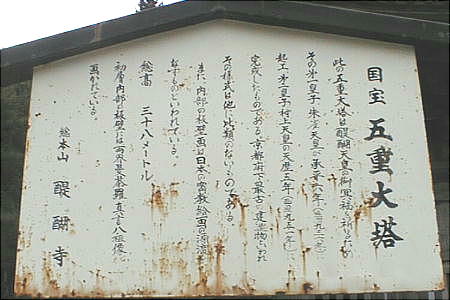 国宝 五重大塔
此の五重大塔は醍醐天皇の御冥福を祈るため
その第一皇子 朱雀天皇が承平六年(西九三六年)
起工、第二皇子村上天皇の天暦五年(西九五一年)
完成したものである。京都府下最古の建造物といわれ
その様式は他に比類のないものである。
また、内部の板壁画は日本の密教絵画の源流を
なすものといわれている。
総高 三十八メートル
初層内部の板壁には両界曼荼羅、真言八祖像が
画かれている。
総本山 醍醐寺